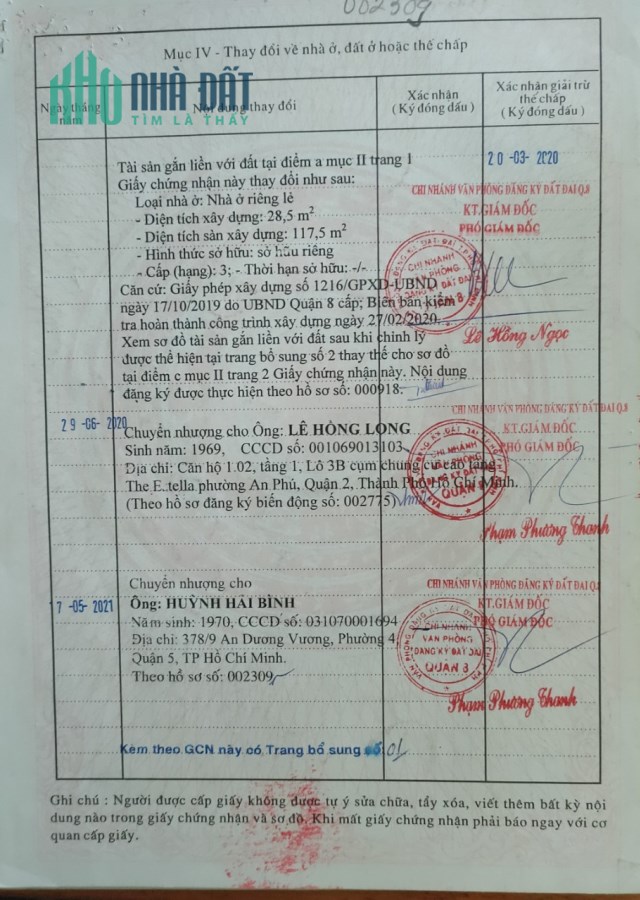 002309
Mục IV - Thay đổi về nhà ở, đất ở hoặc thế chấp
KHO NHÀ ĐẤT
TÌM LÀ THẤY
Ngày tháng năm
Nội dung thay đổi
Xác nhận
( Ký đóng dấu )
Xác nhận giải trừ
thế chấp
( Ký đóng dấu )
20-03-2020
Tài sản gắn liền với đất tại điểm a mục II trang 1
Giấy chứng nhận này thay đổi như sau:
Loại nhà ở: Nhà ở riêng lẻ
- Diện tích xây dựng: 28,5 m²
- Diện tích sàn xây dựng: 117,5 m²
- Hình thức sở hữu: sở hữu riêng
- Cấp (hạng): 3; - Thời hạn sở hữu: -/-
Căn cứ: Giấy phép xây dựng số 1216/GPXD-UBND
ngày 17/10/2019 do UBND Quận 8 cấp; Biên bản kiểm
tra hoàn thành công trình xây dựng ngày 27/02/2020.
Xem sơ đồ tài sản gắn liền với đất sau khi chỉnh lý
được thể hiện tại trang bổ sung số 2 thay thế cho sơ đồ
tại điểm c mục II trang 2 Giấy chứng nhận này. Nội dung
đăng ký được thực hiện theo hồ sơ số: 000918.
CHI NHÁNH VĂN PHÒNG ĐĂNG KÝ ĐẤT ĐAI Q.8
KT.GIÁM ĐỐC
PHÓ GIÁM ĐỐC
CHI NHÁNH
VĂN PHÒNG
ĐĂNG KÝ ĐẤT ĐAI
QUẬN 8
Lê Hồng Ngọc
29-06-2020
Chuyển nhượng cho Ông: LÊ HỒNG LONG
Sinh năm: 1969, CCCD số: 001069013103
Địa chỉ: Căn hộ 1.02, tầng 1, Lô 3B cụm chung cư cao tầng
The E.tella phường An Phú, Quận 2, Thành Phố Hồ Chí Minh.
(Theo hồ sơ đăng ký biến động số: 002775)
CHI NHÁNH VĂN PHÒNG ĐĂNG KÝ ĐẤT ĐAI Q.8
KT.GIÁM ĐỐC
PHÓ GIÁM ĐỐC
CHI NHÁNH
VĂN PHÒNG
ĐĂNG KÝ ĐẤT ĐAI
QUẬN 8
Phạm Phương Thanh
7-05-2021
Chuyển nhượng cho
Ông: HUỲNH HẢI BÌNH
Năm sinh: 1970, CCCD số: 031070001694
Địa chỉ: 378/9 An Dương Vương, Phường 4,
Quận 5, TP Hồ Chí Minh.
Theo hồ sơ số: 002309
CHI NHÁNH VĂN PHÒNG ĐĂNG KÝ ĐẤT ĐAI Q.8
KT.GIÁM ĐỐC
PHÓ GIÁM ĐỐC
CHI NHÁNH
VĂN PHÒNG
ĐĂNG KÝ ĐẤT ĐAI
QUẬN 8
Phạm Phương Thanh
Kèm theo GCN này có Trang bổ sung số 01
Ghi chú : Người được cấp giấy không được tự ý sửa chữa, tẩy xóa, viết thêm bất kỳ nội
dung nào trong giấy chứng nhận và sơ đồ. Khi mất giấy chứng nhận phải báo ngay với cơ
quan cấp giấy.